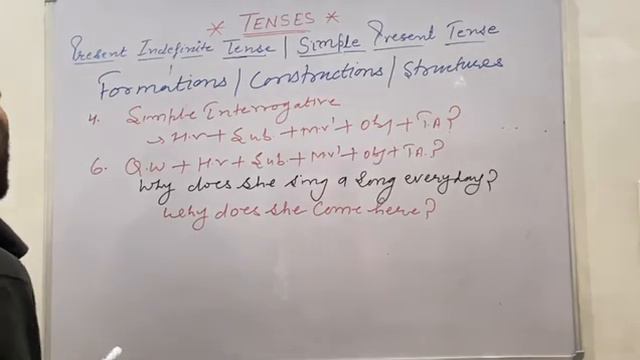 * TENSES *
Present Indefinite Tense | Simple Present Tense
Formations / Constructions / Structures
4. Simple Interrogative
→ H.v + Sub. + M.v¹ + Obj + T.A?
6. Q.W + H.v + Sub. + M.v¹ + Obj + T.A.?
Why does she sing a song everyday?
Why does she come here?